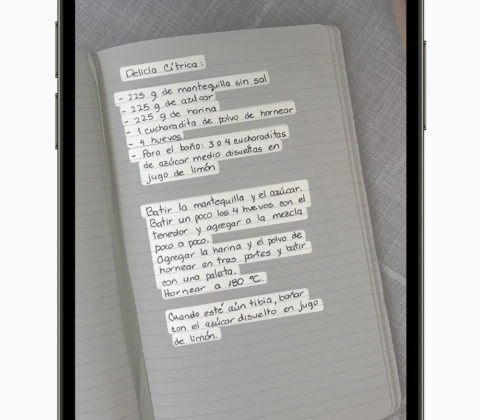 Delicia Cítrica:
- 225 g de mantequilla sin sal
- 225 g de azúlcar
- 225 g de harina
- 1 cucharadita de polvo de hornear
- 4 huevos
- Para el baño: 3 o 4 cucharaditas
de azúcar medio disueltas en
jugo de limón
Batir la mantequilla y el azúcar.
Batir un poco los 4 huevos con el
tenedor y agregar a la mezcla
poco a poco.
Agregar la harina y el polvo de
hornear en tres partes y batir
con una paleta.
Hornear a 180 °C.
Cuando esté aún tibia, bañar
con el azúcar disuelto en jugo
de limón.